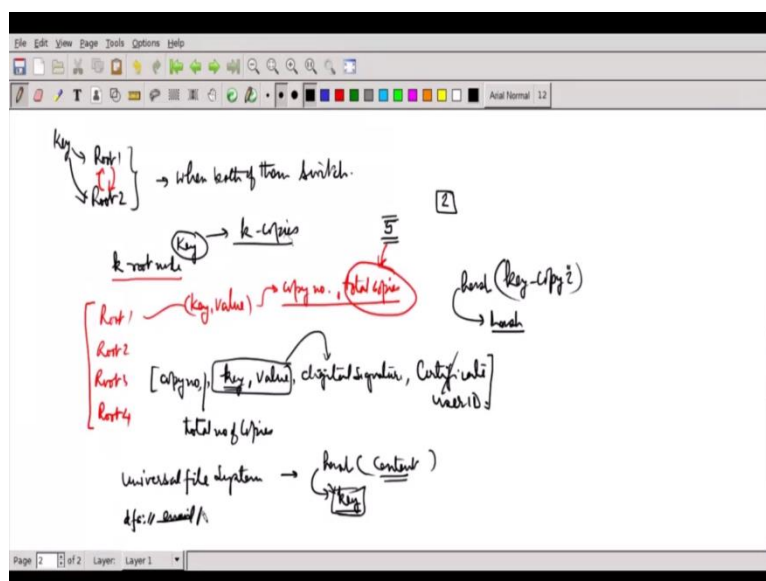 File Edit View Page Tools Options Help
Arial Normal 12
Key → Root 1
Root 2 } → when both of them switch.
2
Key → k-copies
5
k root node
Root 1 (key, value) → copy no., total copies
Root 2
Root 3
Root 4
(key-copy i)
hash
[copy no., key, value, digital signature, Certificate
userID]
total no of copies
universal file system → (content)
key
dfs:// email/
Page 2 of 2 Layer: Layer 1